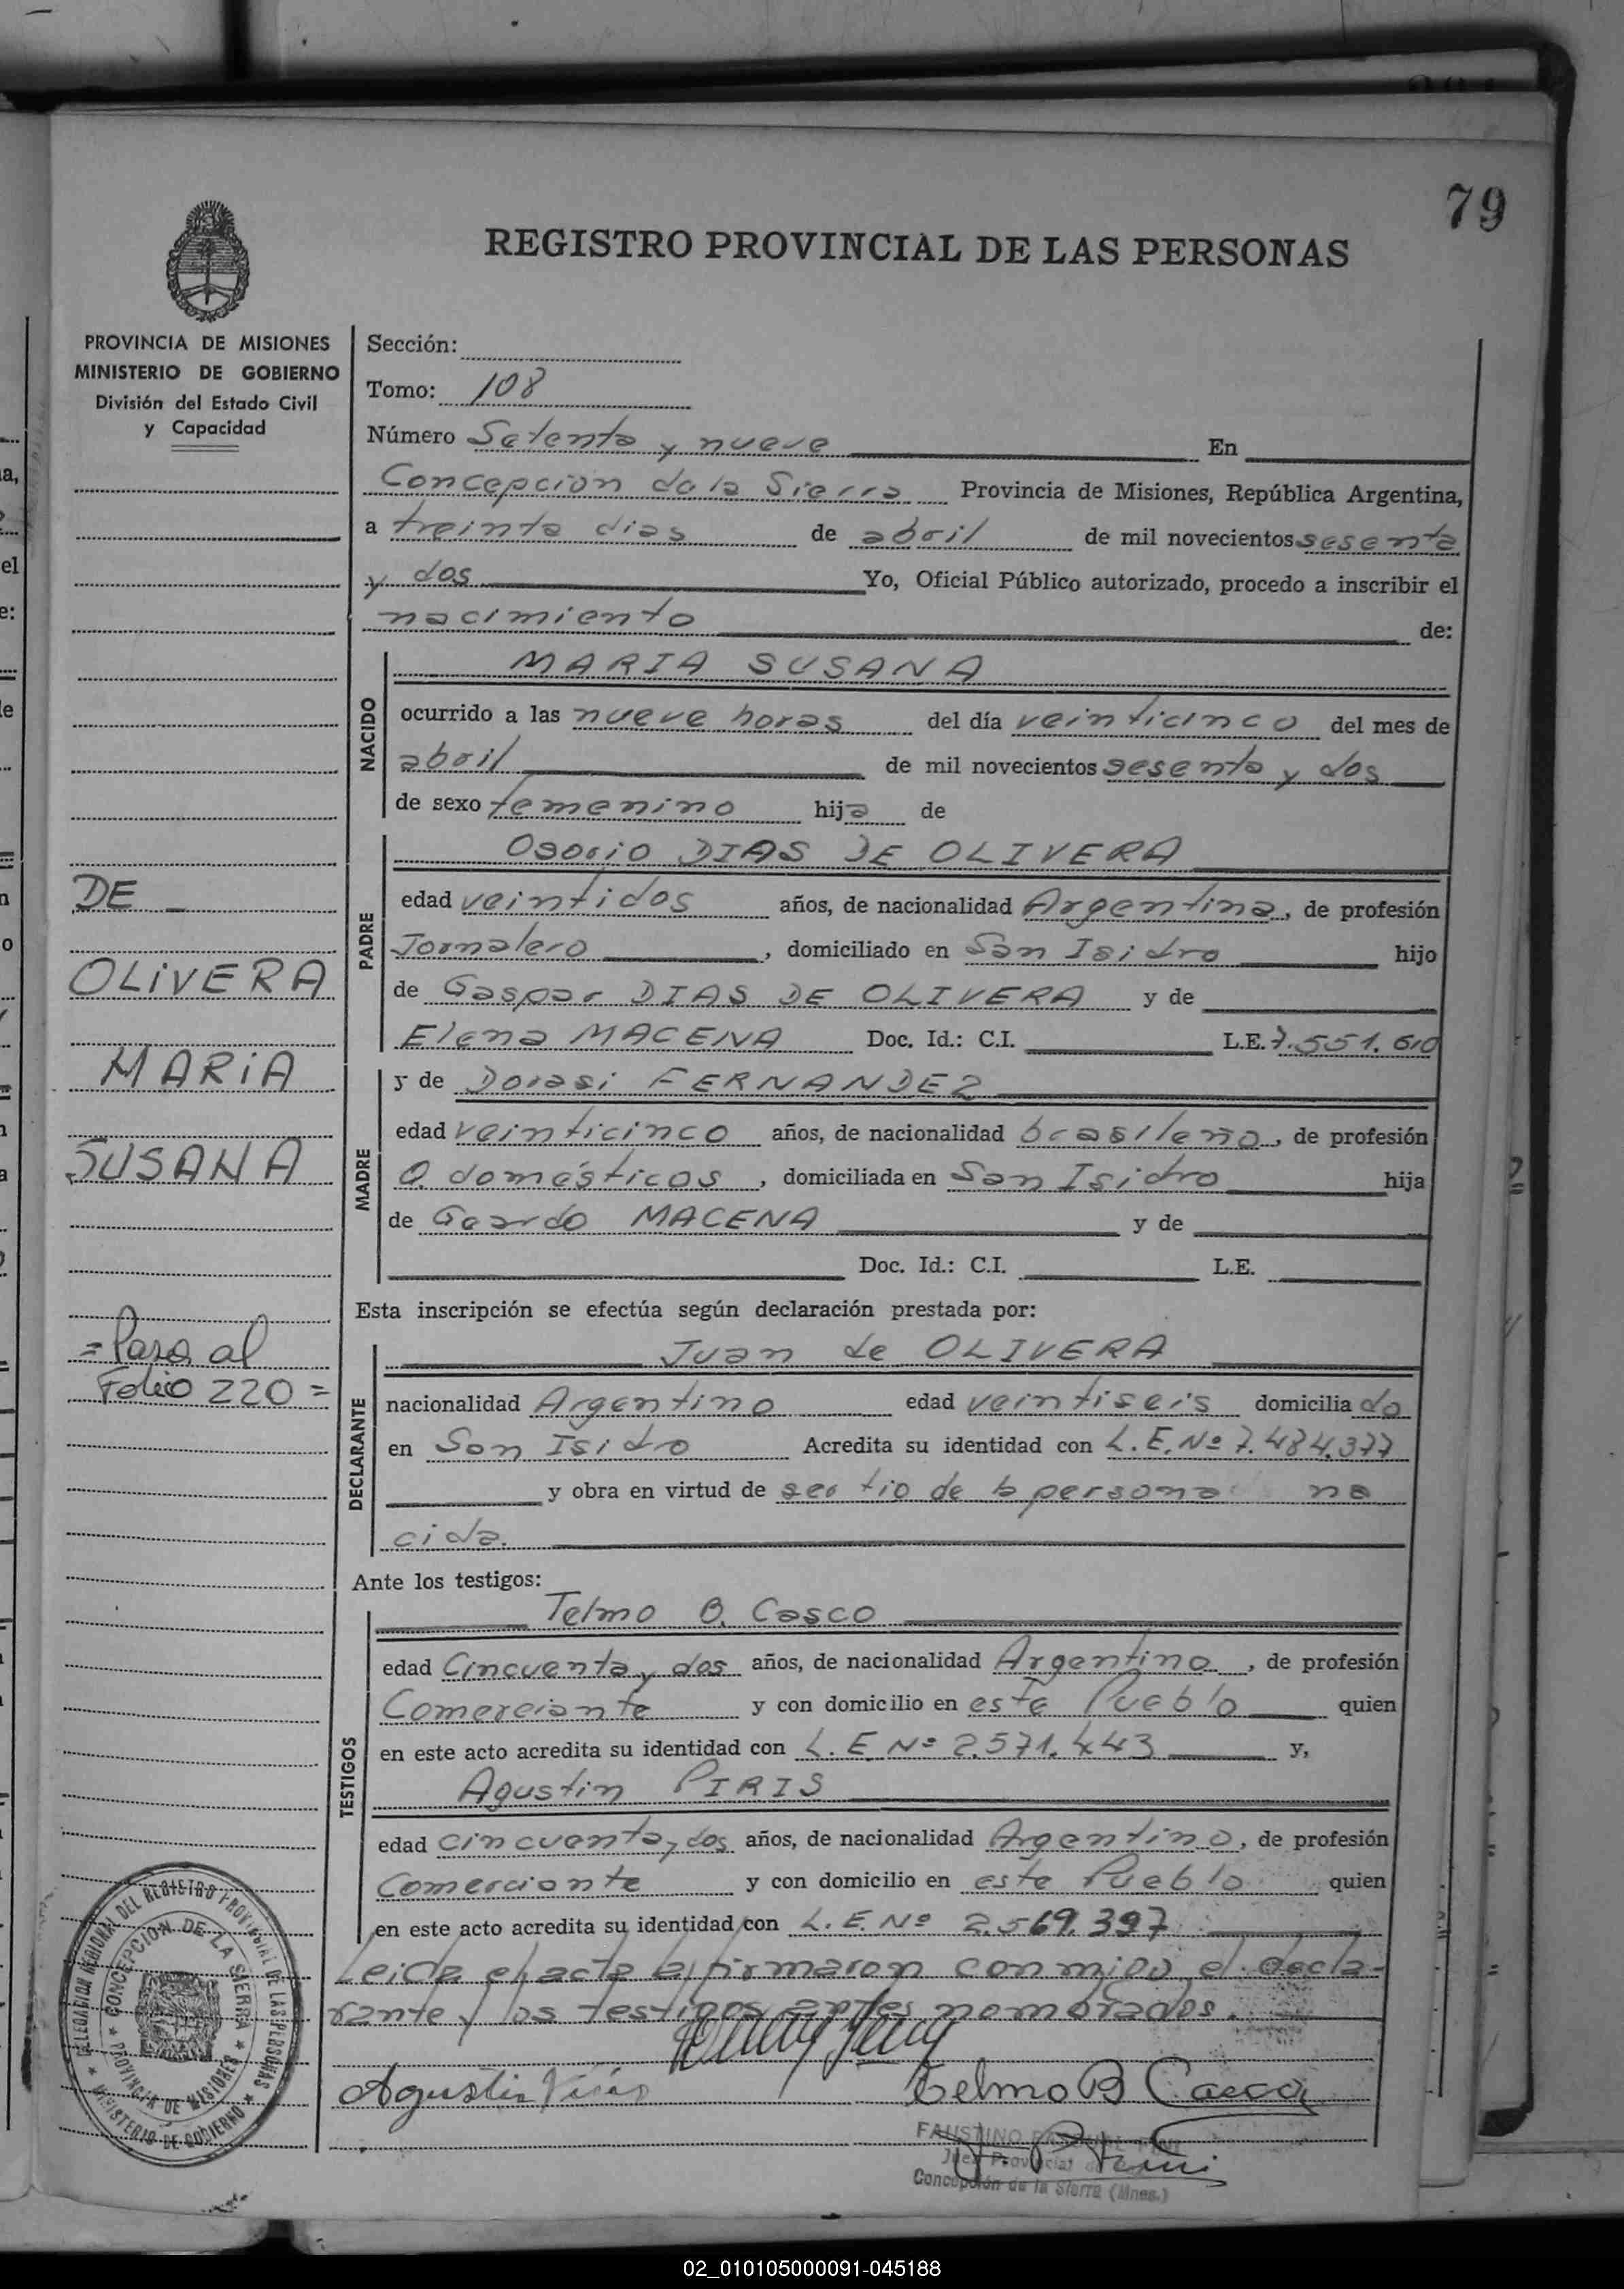 79
REGISTRO PROVINCIAL DE LAS PERSONAS
PROVINCIA DE MISIONES
MINISTERIO DE GOBIERNO
División del Estado Civil
y Capacidad
DE
OLIVERA
MARIA
SUSANA
= Pasa al
Folio 220 =
Sección:
Tomo: 108
Número Setenta y nueve En
Concepcion de la Sierra Provincia de Misiones, República Argentina,
a treinta dias de abril de mil novecientos sesenta
y dos Yo, Oficial Público autorizado, procedo a inscribir el
nacimiento de:
NACIDO
MARIA SUSANA
ocurrido a las nueve horas del día veinticinco del mes de
abril de mil novecientos sesenta y dos
de sexo femenino hija de
PADRE
Osorio DIAS DE OLIVERA
edad veintidos años, de nacionalidad Argentina, de profesión
Jornalero, domiciliado en San Isidro hijo
de Gaspar DIAS DE OLIVERA y de
Elena MACENA Doc. Id.: C.I. L.E. 7.551.610
MADRE
y de Dorasi FERNANDEZ
edad veinticinco años, de nacionalidad brasileña, de profesión
Q. domésticos, domiciliada en San Isidro hija
de Geardo MACENA y de
Doc. Id.: C.I. L.E.
Esta inscripción se efectúa según declaración prestada por:
DECLARANTE
Juan de OLIVERA
nacionalidad Argentino edad veintiseis domiciliado
en San Isidro Acredita su identidad con L.E. Nº 7.484.377
y obra en virtud de ser tio de la persona na
cida.
Ante los testigos:
TESTIGOS
Telmo B. Casco
edad Cincuenta y dos años, de nacionalidad Argentino, de profesión
Comerciante y con domicilio en este Pueblo quien
en este acto acredita su identidad con L.E. Nº 2.571.443 y,
Agustin PIRIS
edad cincuenta y dos años, de nacionalidad Argentino, de profesión
Comerciante y con domicilio en este Pueblo quien
en este acto acredita su identidad con L.E. Nº 2.569.397
Leida el acta la firmaron conmigo, el decla-
rante y los testigos antes nombrados.
Agustin Piris Telmo B Casco
FAUSTINO
Juez Provincial de
Concepción de la Sierra (Mnes.)
DELEGACION REGIONAL DEL REGISTRO PROVINCIAL DE LAS PERSONAS
MINISTERIO DE GOBIERNO
CONCEPCION DE LA SIERRA
PROVINCIA DE MISIONES
02_010105000091-045188